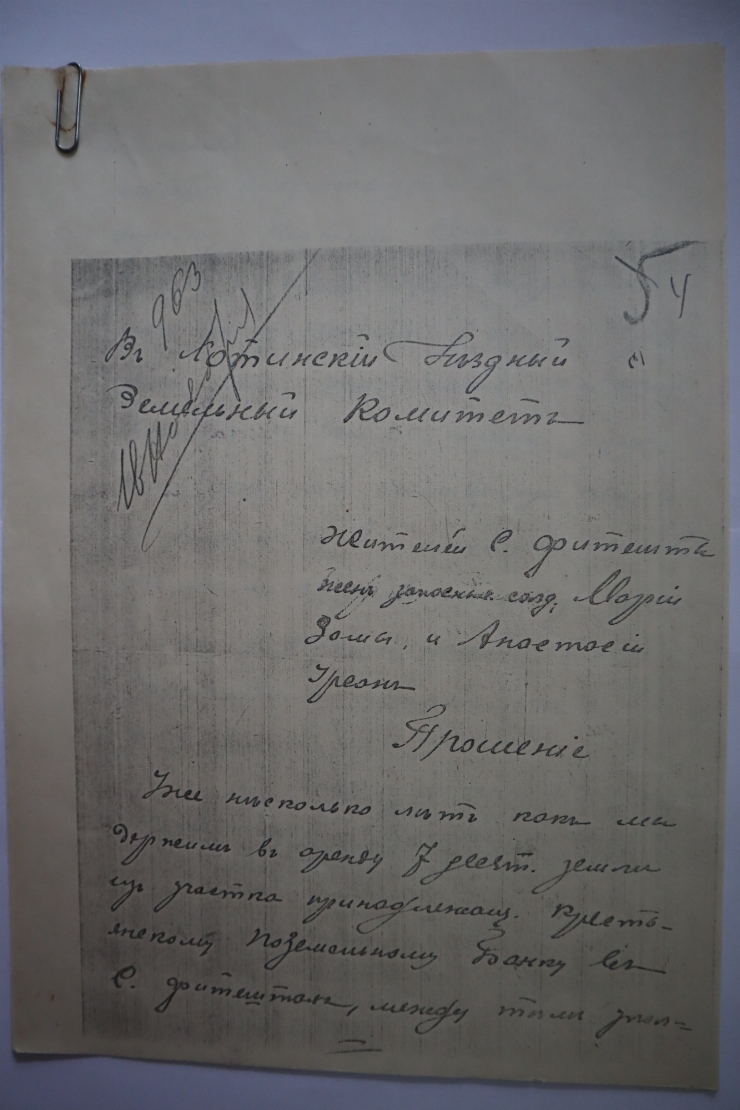 963
54
Въ Хотинскій Уѣздный
Земельный Комитетъ
Жителей с. Фитешты
женъ запасныхъ солд. Маріи
Замы, и Анастасіи
Урсанъ
Прошеніе
Уже нѣсколько лѣтъ какъ мы
держимъ въ аренду 7 десят. земли
изъ участка принадлежащ. Кресть-
янскому Поземельному Банку въ
с. Фитештахъ, между тѣмъ